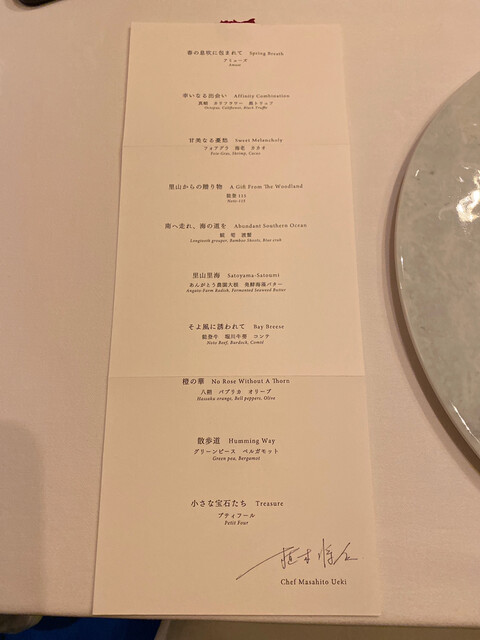 春の息吹に包まれて Spring Breath
アミューズ
Amuse
幸いなる出会い Affinity Combination
真蛸 カリフラワー 黒トリュフ
Octopus, Califlower, Black Truffle
甘美なる憂愁 Sweet Melancholy
フォアグラ 海老 カカオ
Foie-Gras, Shrimp, Cacao
里山からの贈り物 A Gift From The Woodland
能登 115
Noto 115
南へ走れ、海の道を Abundant Southern Ocean
筍
Longtooth grouper, Bamboo Shoots, Blue crab
里山里海 Satoyama-Satoumi
あんがとう農園大根 発酵海藻バター
Angato-Farm Radish, Fermented Seaweed Butter
そよ風に誘われて Bay Breese
能登牛 堀川牛蒡 コンテ
Noto Beef, Burdock, Comté
橙の華 No Rose Without A Thorn
八朔 パプリカ オリーブ
Hassaku orange, Bell peppers, Olive
散歩道 Humming Way
グリーンピース ベルガモット
Green pea, Bergamot
小さな宝石たち Treasure
プティフール
Petit Four
Chef Masahito Ueki